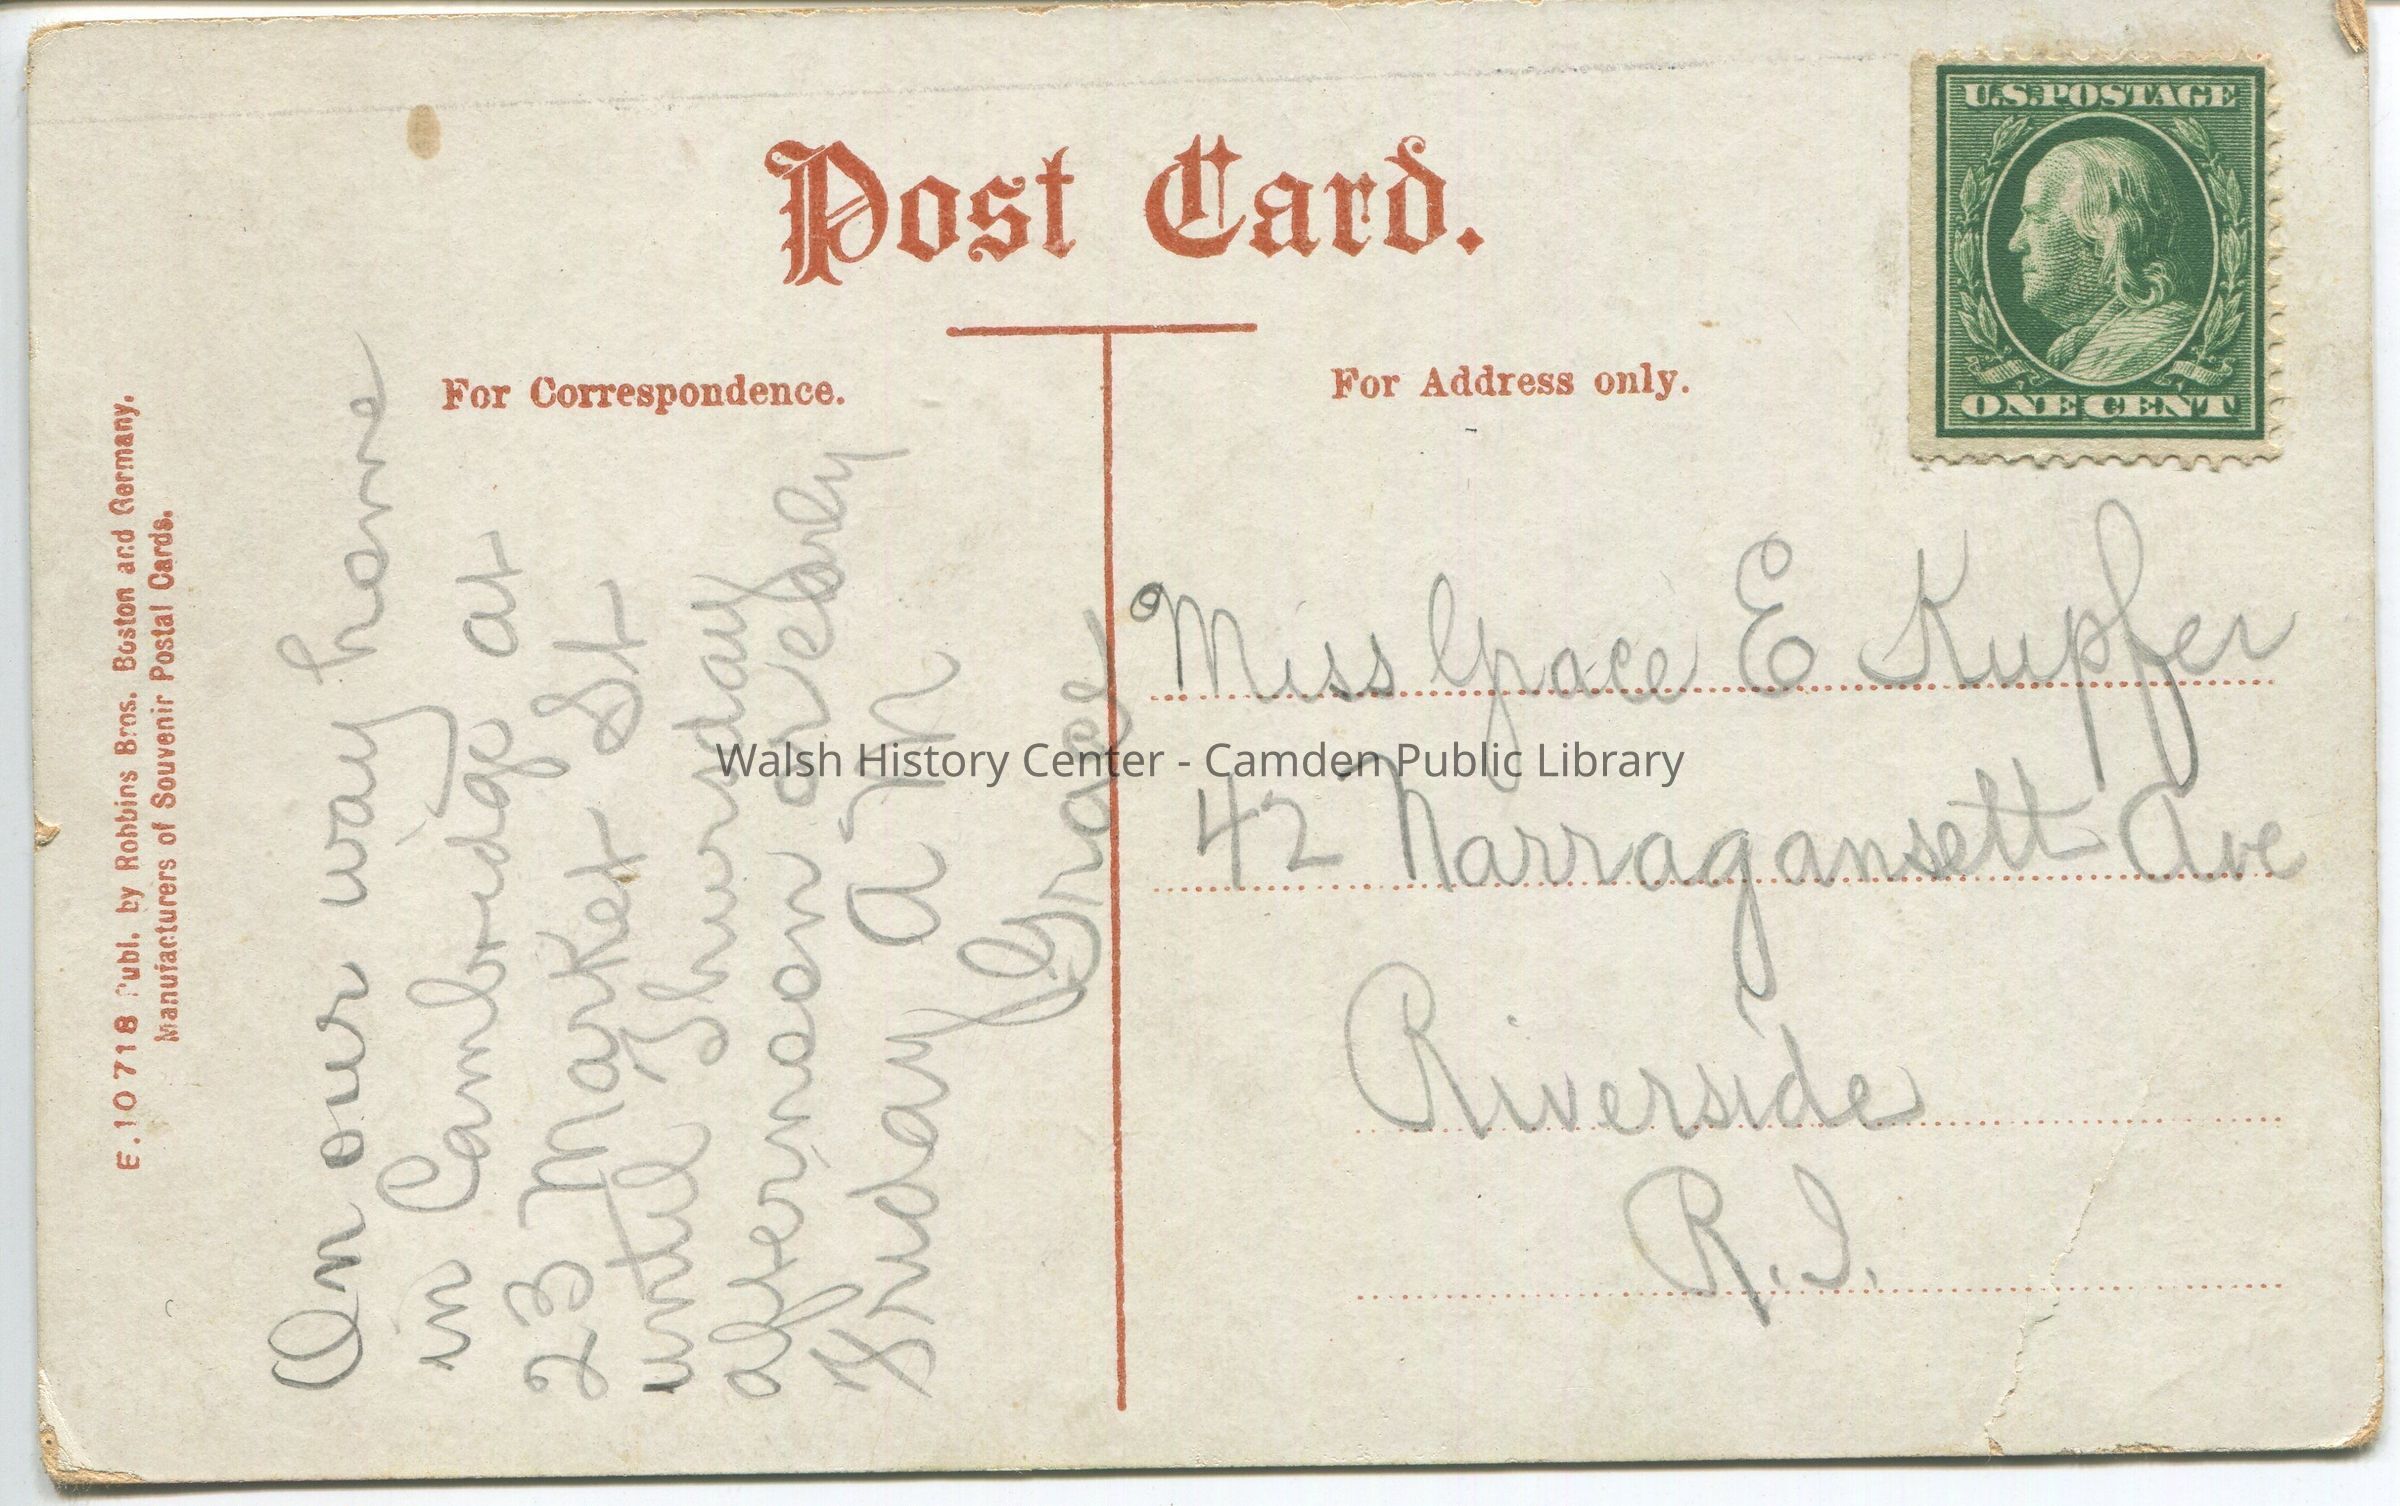 Post Card.
For Correspondence.
For Address only.
U.S. POSTAGE
ONE CENT
E. 10 718 Publ. by Robbins Bros. Boston and Germany.
Manufacturers of Souvenir Postal Cards.
On our way home
in Cambridge at
23 Market St
until Thursday
afternoon or early
Friday A M
Grace
Miss Grace E Kupfer
42 Narragansett Ave
Riverside
R.I.
Walsh History Center - Camden Public Library